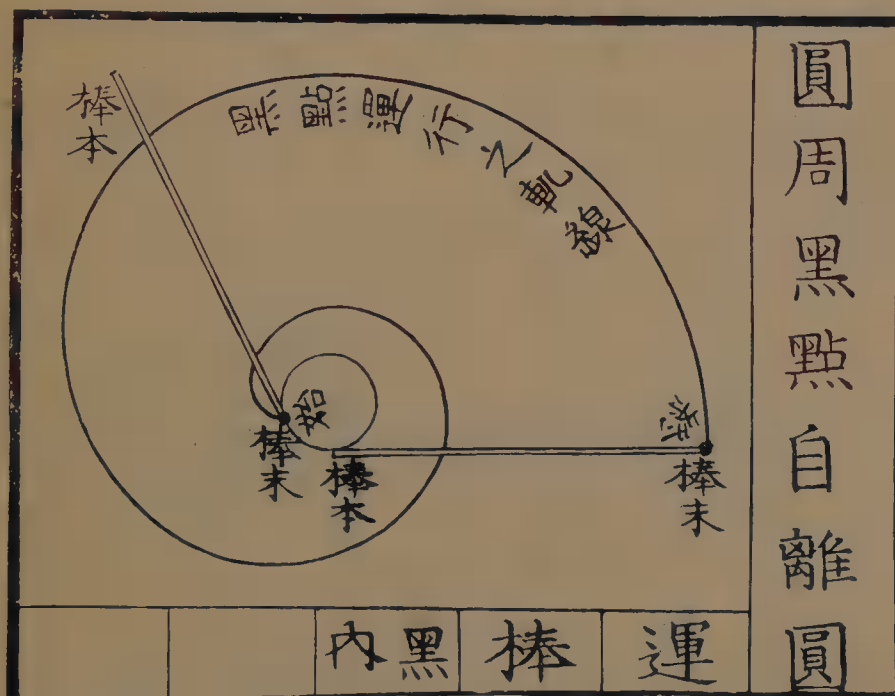 圓周黑點自離圓
黑點運行之軌線
棒本
始
棒末
棒本
終
棒末
運
棒
黑內